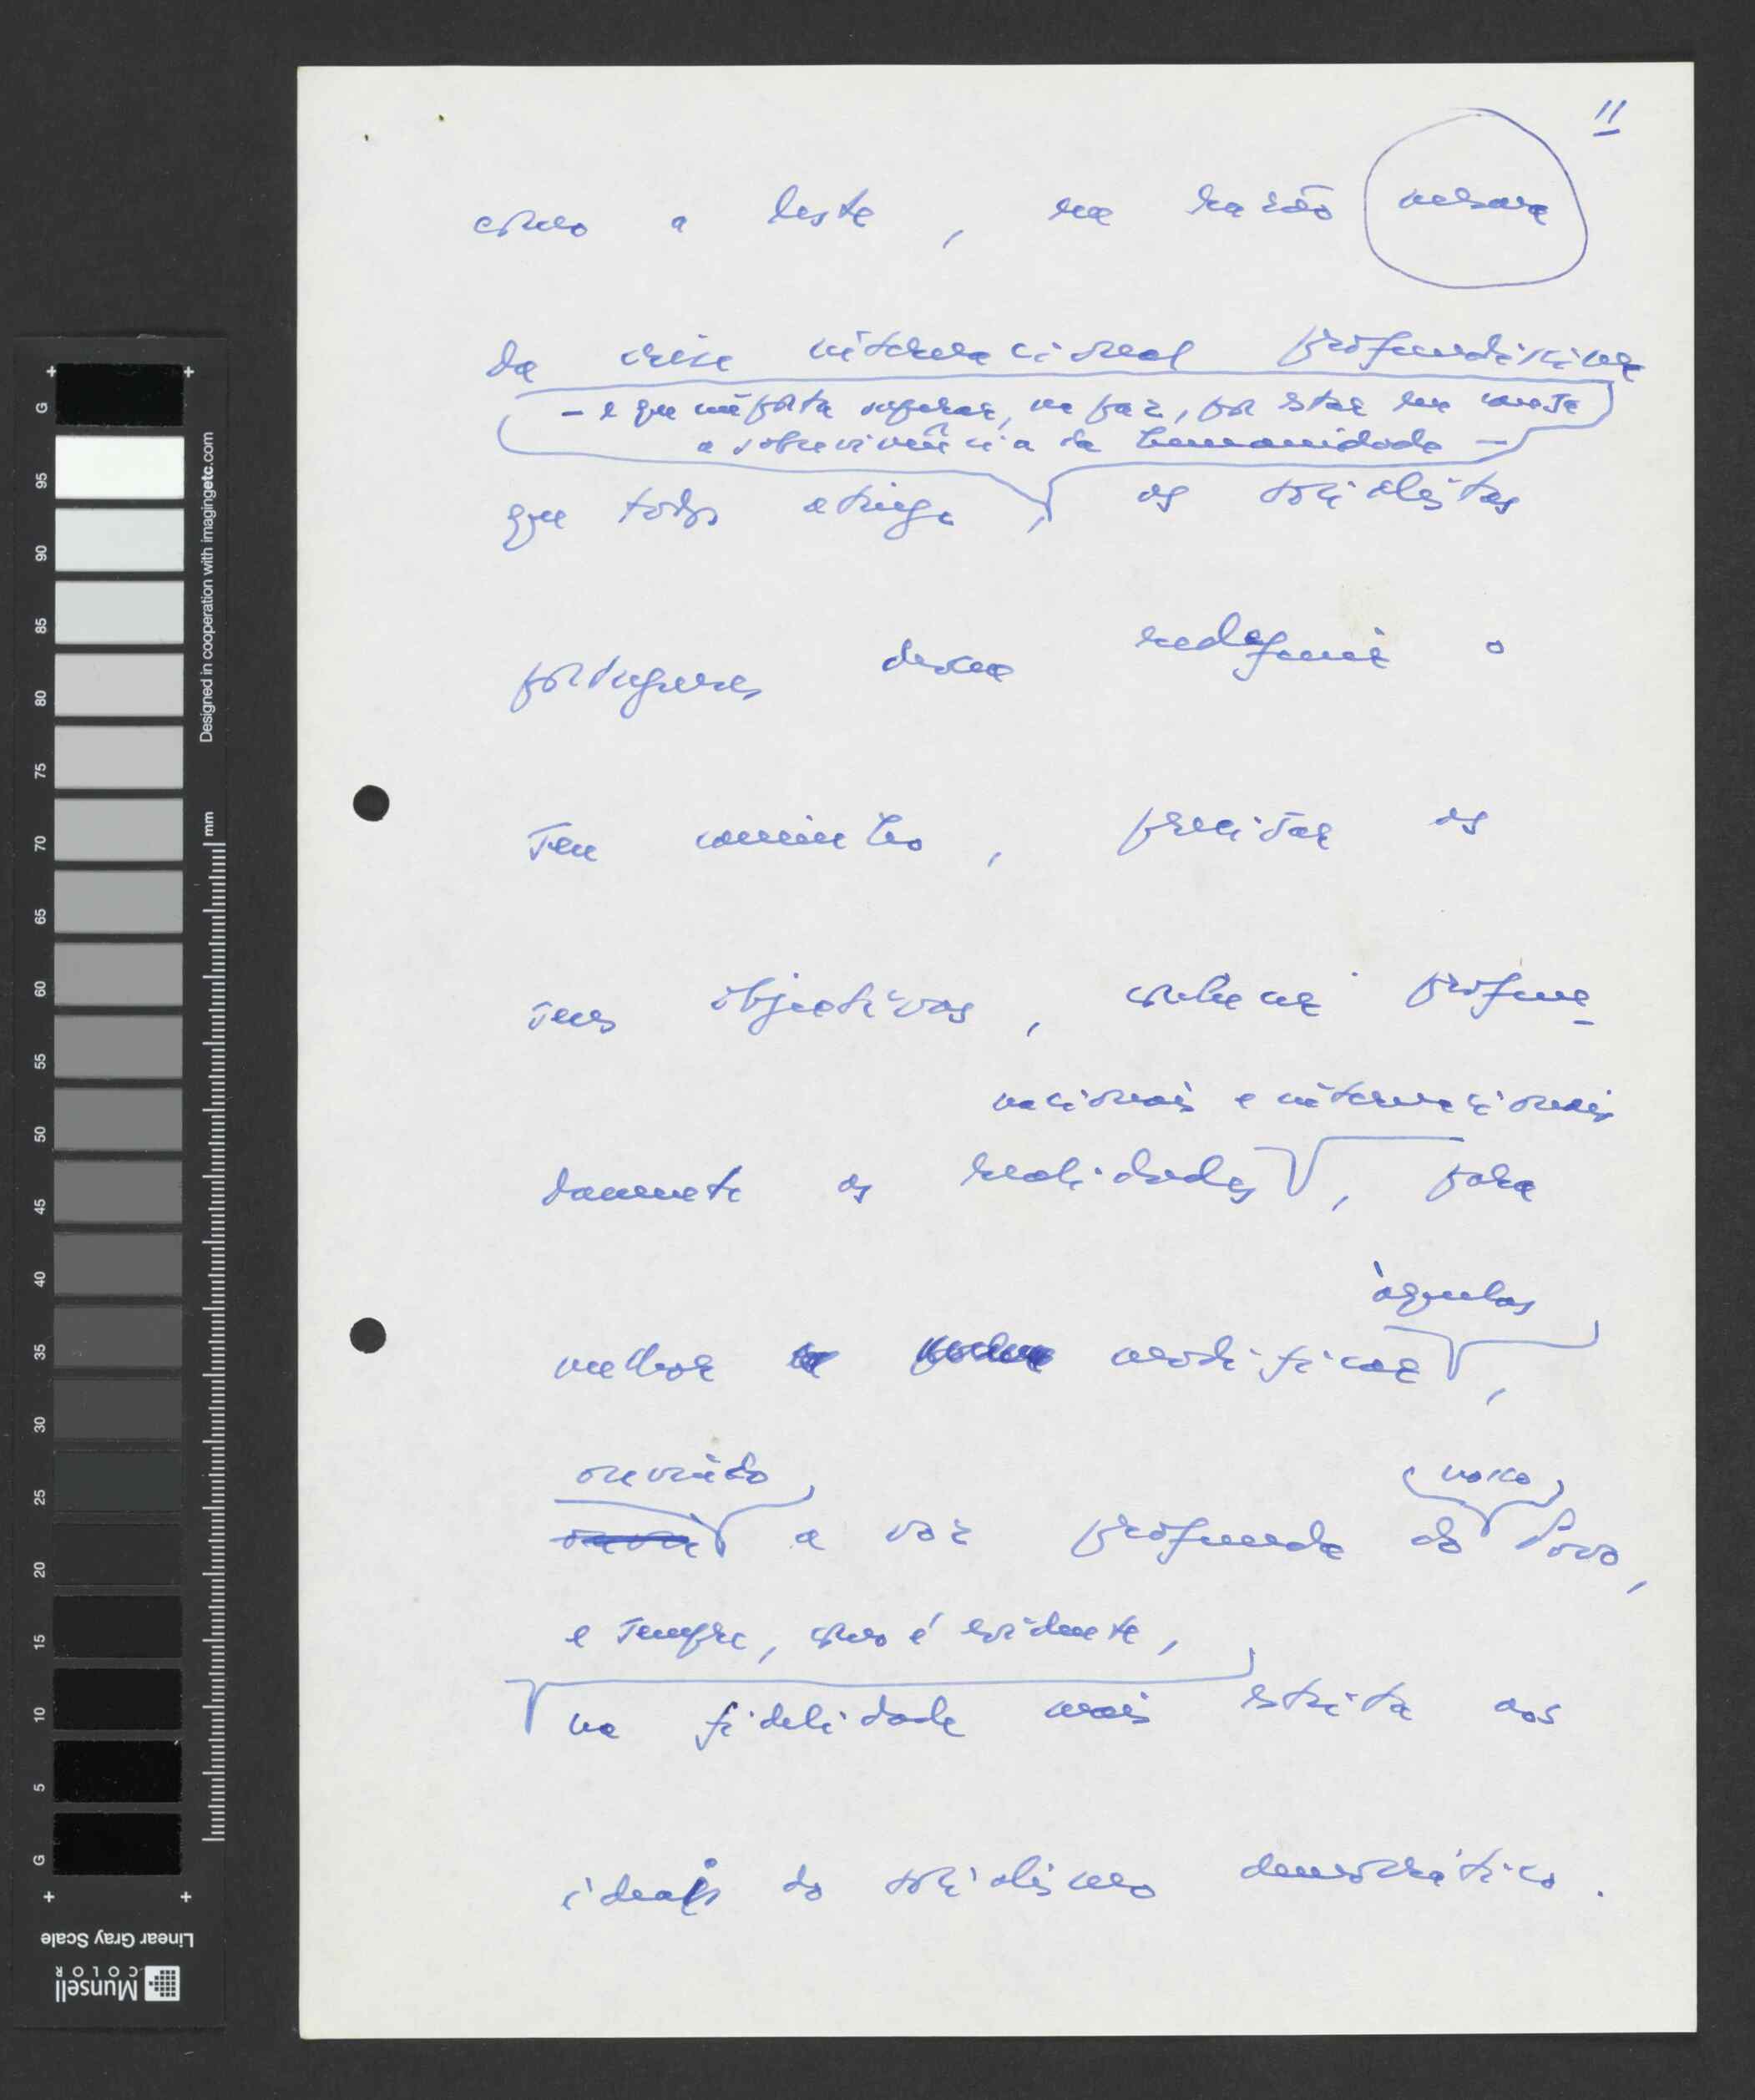 11
como a leste, em razão mesmo
da crise internacional profundíssima
– e que importa superar, na paz, por estar em causa
a sobrevivência da humanidade –
que todos atinge, os socialistas
portugueses devem redefinir o
seu caminho, precisar os
seus objectivos, conhecer profun-
nacionais e internacionais
damente as realidades, para
àquelas
melhor modificar,
ouvindo
nosso
a voz profunda do Povo,
e sempre, como é evidente,
na fidelidade mais estrita aos
ideais do socialismo democrático.
G
95
90
85
80
75
70
65
60
55
50
45
40
35
30
25
20
15
10
5
G
Designed in cooperation with imagingetc.com
mm
Linear Gray Scale
Munsell
COLOR